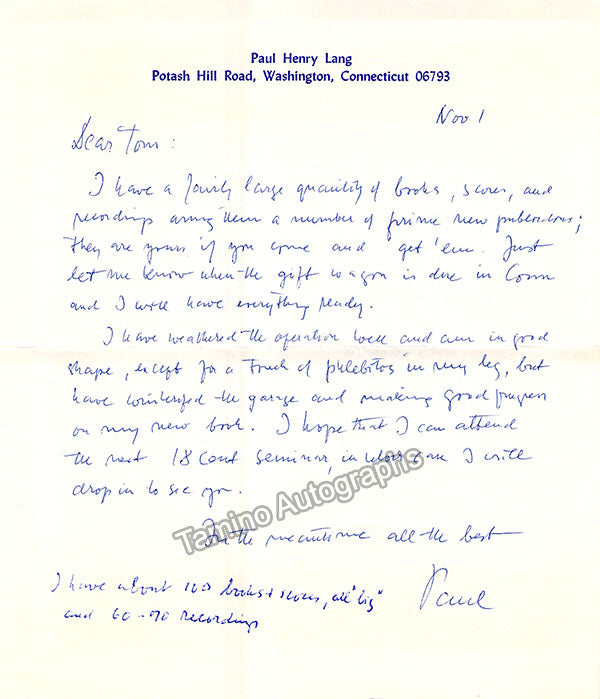 Paul Henry Lang
Potash Hill Road, Washington, Connecticut 06793
Nov 1
Dear Tom:
I have a fairly large quantity of books, scores, and
recordings among them a number of prime new publications;
they are yours if you come and 'get 'em. Just
let me know when the gift wagon is due in Conn
and I will have everything ready.
I have weathered the operation well and am in good
shape, except for a touch of phlebitis in my leg, but
have winterized the garage and making good progress
on my new book. I hope that I can attend
the next 18 Cent seminar, in which case I will
drop in to see you.
In the meantime all the best
Paul
I have about 100 books + scores, all "big"
and 60-70 recordings
Tamino Autographs